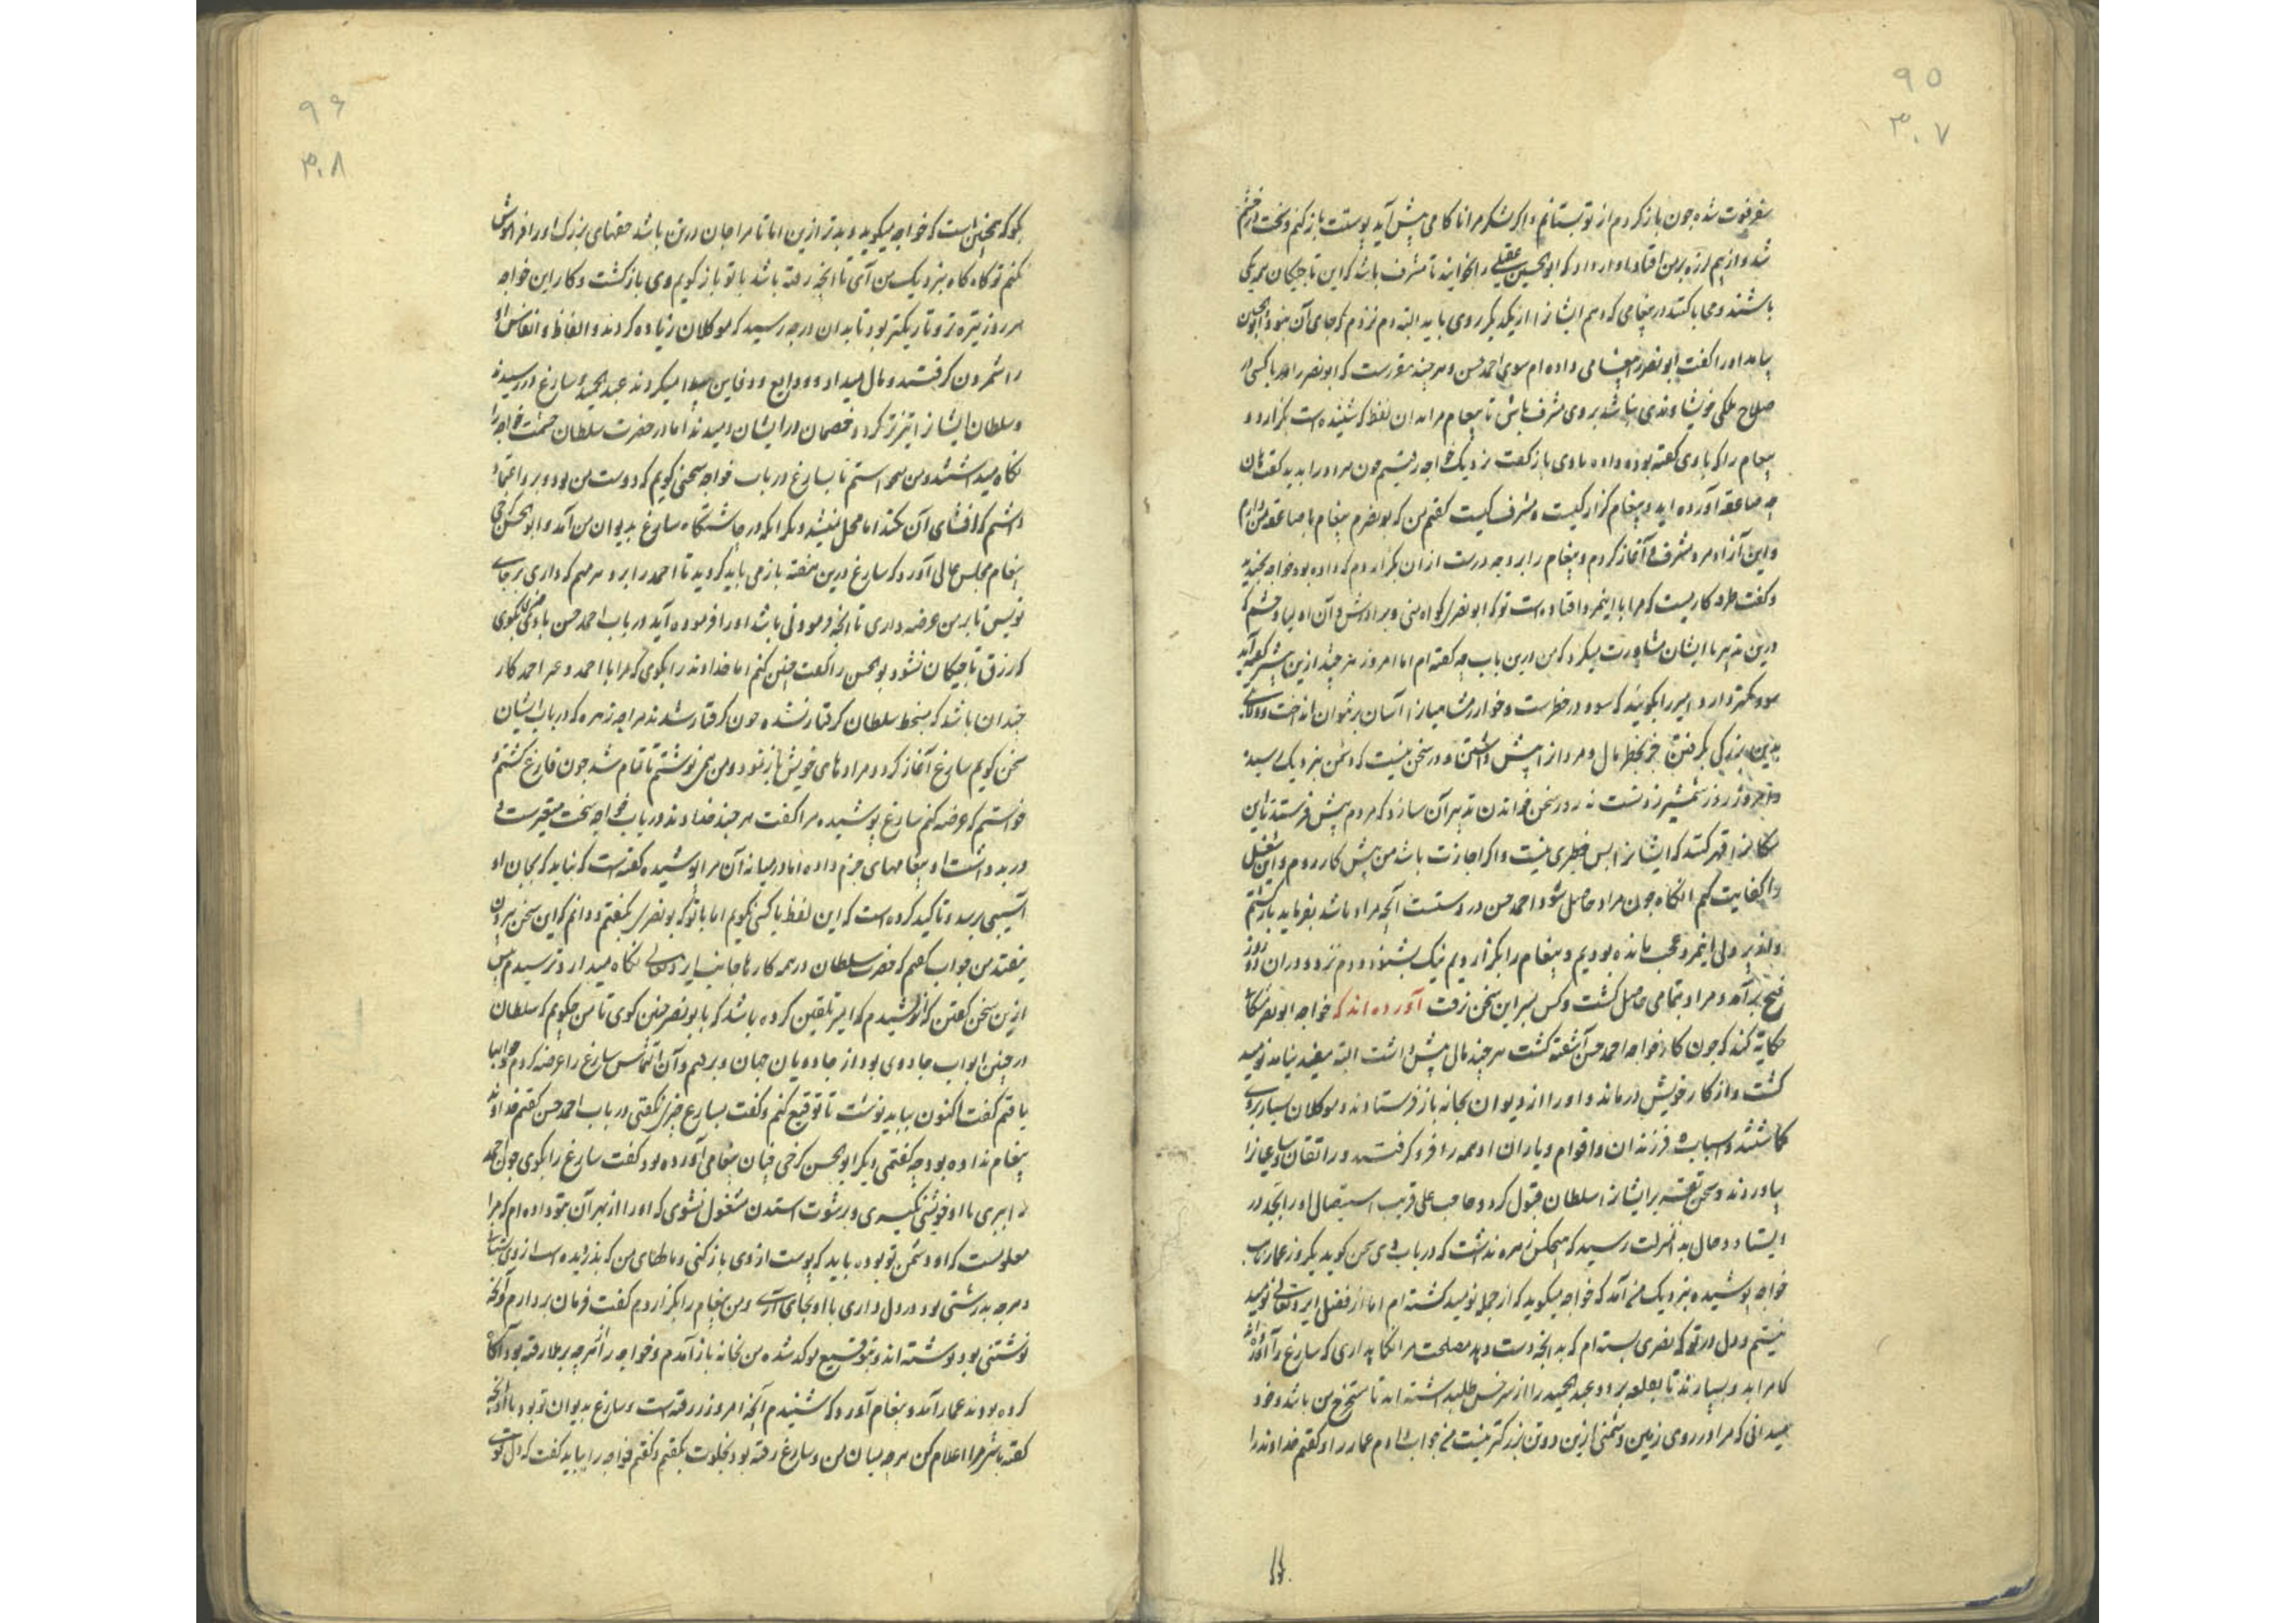 ۹۵
۳۰۷
سفر فوت شده چون باز کردم از تو بستانم و اگر لشکر مرا ناکامی پیش آید پوستت باز کنم و سخت در خشم
شد و از بیم لرزه بر من افتاد و آواز داد که ابوالحسین عقیلی را بخوانید تا مشرف باشد که این تاجیکان همه یکی
باشند و محابا کنند در پیغامی که دهم ایشانرا از یکدیگر روی باید البته دم نزدم که جای آن نبود و ابوالحسین
بیامد او را گفت ابونصر را پیغامی داده‌ام سوی احمد حسن و هر چند مقررست که ابونصر را ور با کسی از
صلاح ملکی خویشاوندی نباشد بر وی مشرف باش تا پیغام مرا بدان لفظ که شنیده است بگزارد و
پیغام را که با وی گفته بود و داده با وی باز گفت نزدیک خواجه رفتیم چون مرا دور بدید گفت هان
چه صاعقه آورده‌اید و پیغام گزار کیست و مشرف کیست گفتم من که بونصرم پیغام با صاعقه من دارم
و این آزاد مرد مشرف و آغاز کردم و پیغام را بر وجه درست از آن بگزاردم که داده بود خواجه بخندید
و گفت طرفه کاریست که مرا با اینمرد افتاده است تو که ابونصری گواه منی و برادرش و آن اولیا و حشم که
درین تدبیر با ایشان مشاورت میکرد که من درین باب چه گفته‌ام اما امروز هر چند ازین بیشتر گفته آید
سود کمتر دارد امیر را بگویند که سود در خطرست و خوارزمشاهیان را آسان بر نتوان انداخت و ولایتی
بدین بزرگی بگرفتن جز بخطر مال و مرد از پیش داشتن و در سخن نیست که دشمن نزدیک رسید
و امروز روز شمشیر زدنست نه روز سخن خواندن تدبیر آن سازد که مردم پیش فرستد تا این
سگانرا قهر کنند که ایشانرا بس خطری نیست و اگر اجازت باشد من پیش کار روم و این شغل
را کفایت کنم آنگاه چون مراد حاصل شود احمد حسن در دستست آنچه مراد باشد بفرماید بازگشتم
و از پر دلی اینمرد عجب مانده بودیم و پیغام را بگزاردیم نیک بشنود و دم نزد و در آن دو روز
فتح برآمد و مراد بتمامی حاصل گشت و کس بسر این سخن نرفت آورده‌اند که خواجه ابونصر مشکان
حکایت کند که چون کار خواجه احمد حسن آشفته گشت هر چند مال پیش داشت البته مفید نیامد نومید
گشت و از کار خویش درماند و او را از دیوان بخانه باز فرستادند و موکلان بسیار بر وی
گماشتند و اسباب و فرزندان و اقوام و یاران او همه را فرو گرفتند و را تقان و سباعیانرا
بیاوردند و سخن تعنت بر ایشانرا سلطان قبول کرد و حاجب علی قریب استیصال او را بجد در
ایستاد و حال بدانمنزلت رسید که هیچکس زهره نداشت که در باب وی سخن گوید یکروز عمار نایب
خواجه پوشیده بنزدیک من آمد که خواجه میگوید که از جمله نومید گشته‌ام اما از فضل ایزد تعالی نومید
نیستم و دل در تو که بصری بسته‌ام که بدانچه دست دهد مصلحت مرا نگاه داری که سارغ را آورده اند
کامرا بدو بسپارند تا بقلعه برد و عبدالحمید را از سرخس طلب داشته اند تا مستخرج من باشد و خود
میدانی که مرا در روی زمین دشمنی ازین دو تن بزرگتر نیست من جواب دادم عمار را و گفتم خداوند را
۹۶
۳۰۸
بگو که همچنین است که خواجه میگوید و بدتر ازین اما تا مرا جان در تن باشد حقهای بزرگ او را فراموش
نکنم تو گاه گاه بنزدیک من آی تا آنچه رفته باشد با تو باز گویم وی بازگشت و کار این خواجه
هر روز تیره‌تر و تاریکتر بود تا بدان درجه رسید که موکلان زیاده کردند و الفاظ و انفاس او
را شمردن گرفتند و مال میداد و ودایع و دفاین پیدا میکردند عبدالحمید و سارغ در رسیدند
و سلطان ایشانرا تیزتر کرد و خصمان در ایشان دمیدند اما در حضرت سلطان حشمت خواجه را
نگاه میداشتند و من میخواستم تا بسارغ در باب خواجه سخنی گویم که دوست من بود و بر و اعتماد
داشتم که افشای آن نکند اما محل نمیشد و بکر ایکه در چاشتگاه سارغ بدیوان من آمد و ابوالحسن کرخی
پیغام مجلس عالی آورد که سارغ درین هفته باز می باید گردید تا احمد را برد و هر مهم که داری برجای
نویس تا بر من عرضه داری تا آنچه فرمودنی باشد او را فرموده آید در باب احمد حسن با وی چیزی نگوی
که رزق تاجیکان نشود بوالحسن را گفت چنین کنم اما خداوند را بگوی که مرا با احمد و عمر احمد کار
چندان باشد که بسخط سلطان گرفتار نشده چون گرفتار شدند مرا چه زهره که در باب ایشان
سخن گویم سارغ آغاز کرد و مرادهای خویش باز نمود و من می نوشتم تا تمام شد چون فارغ گشتم و
خواستم که عرضه کنم سارغ پوشیده مرا گفت هر چند خداوند در باب خواجه سخت متغیرست و
در بد داشت او پیغامهای جزم داده اما در میانه آن مرا پوشیده گفته است که نباید که بجان او
آسیبی برسد و تاکید کرده است که این لفظ با کسی نگویم اما با تو که بونصری بگفتم و دانم که این سخن بیرون
نیفتد من جواب گفتم که حضرت سلطان در همه کارها جانب ایزد تعالی نگاه میدارد و ترسیدم پس
ازین سخن گفتن که اندیشیدم که امیر تلقین کرده باشد که با بونصر چنین گوی تا من چگویم که سلطان
در چنین ابواب جادوی بود از جادویان جهان و برفتم و آن التماس سارغ را عرضه کردم و جوابها
یافتم گفت اکنون بباید نوشت تا توقیع کنم و گفت بسارغ چیزی نگفتی در باب احمد حسن گفتم خداوند
پیغام نداده بود چه گفتمی دیگر ابوالحسن کرخی چنان پیغامی آورده بود گفت سارغ را بگوی چون احمد
را ببری با او خویشتن نگیری و برشوت استدن مشغول نشوی که او را از بهر آن بتو داده‌ام که مرا
معلومست که او دشمن تو بوده باید که پوست از وی باز کنی و مالهای من که بدزدیده است از وی بستانی
و هر چه بدرشتی بود در دل داری با او بجای آری و من پیغام را بگزاردم گفت فرمان بردارم و آنچه
نوشتنی بود نوشته اند و بتوقیع موکد شد من بخانه باز آمدم و خواجه را آنچه بر ملا رفته بود آگاه
کرده بودند عمار آمد و پیغام آورد که شنیدم آنچه امروز رفته است و سارغ بدیوان تو بود با او آنچه
گفته باشی مرا اعلام کن هر چه میان من و سارغ رفته بود بخلوت بگفتم و گفتم خواجه را بباید گفت که دل قوی